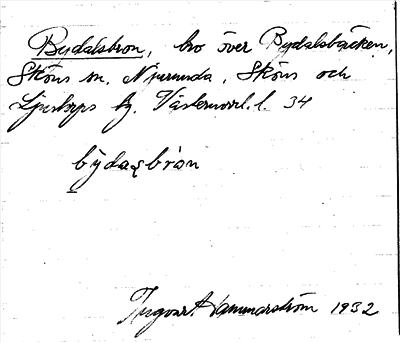 Bydalsbron, bro över Bydalsbäcken,
Sköns sn. Njurunda, Sköns och
Ljustorps tg. Västernorrl. l. 34
býdaɽbròn
Ingvar Hammarström 1932